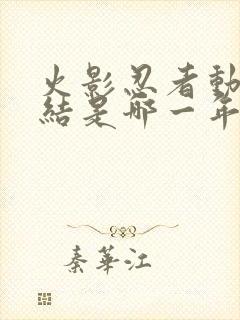 火影忍者動
結是哪一年
秦華江